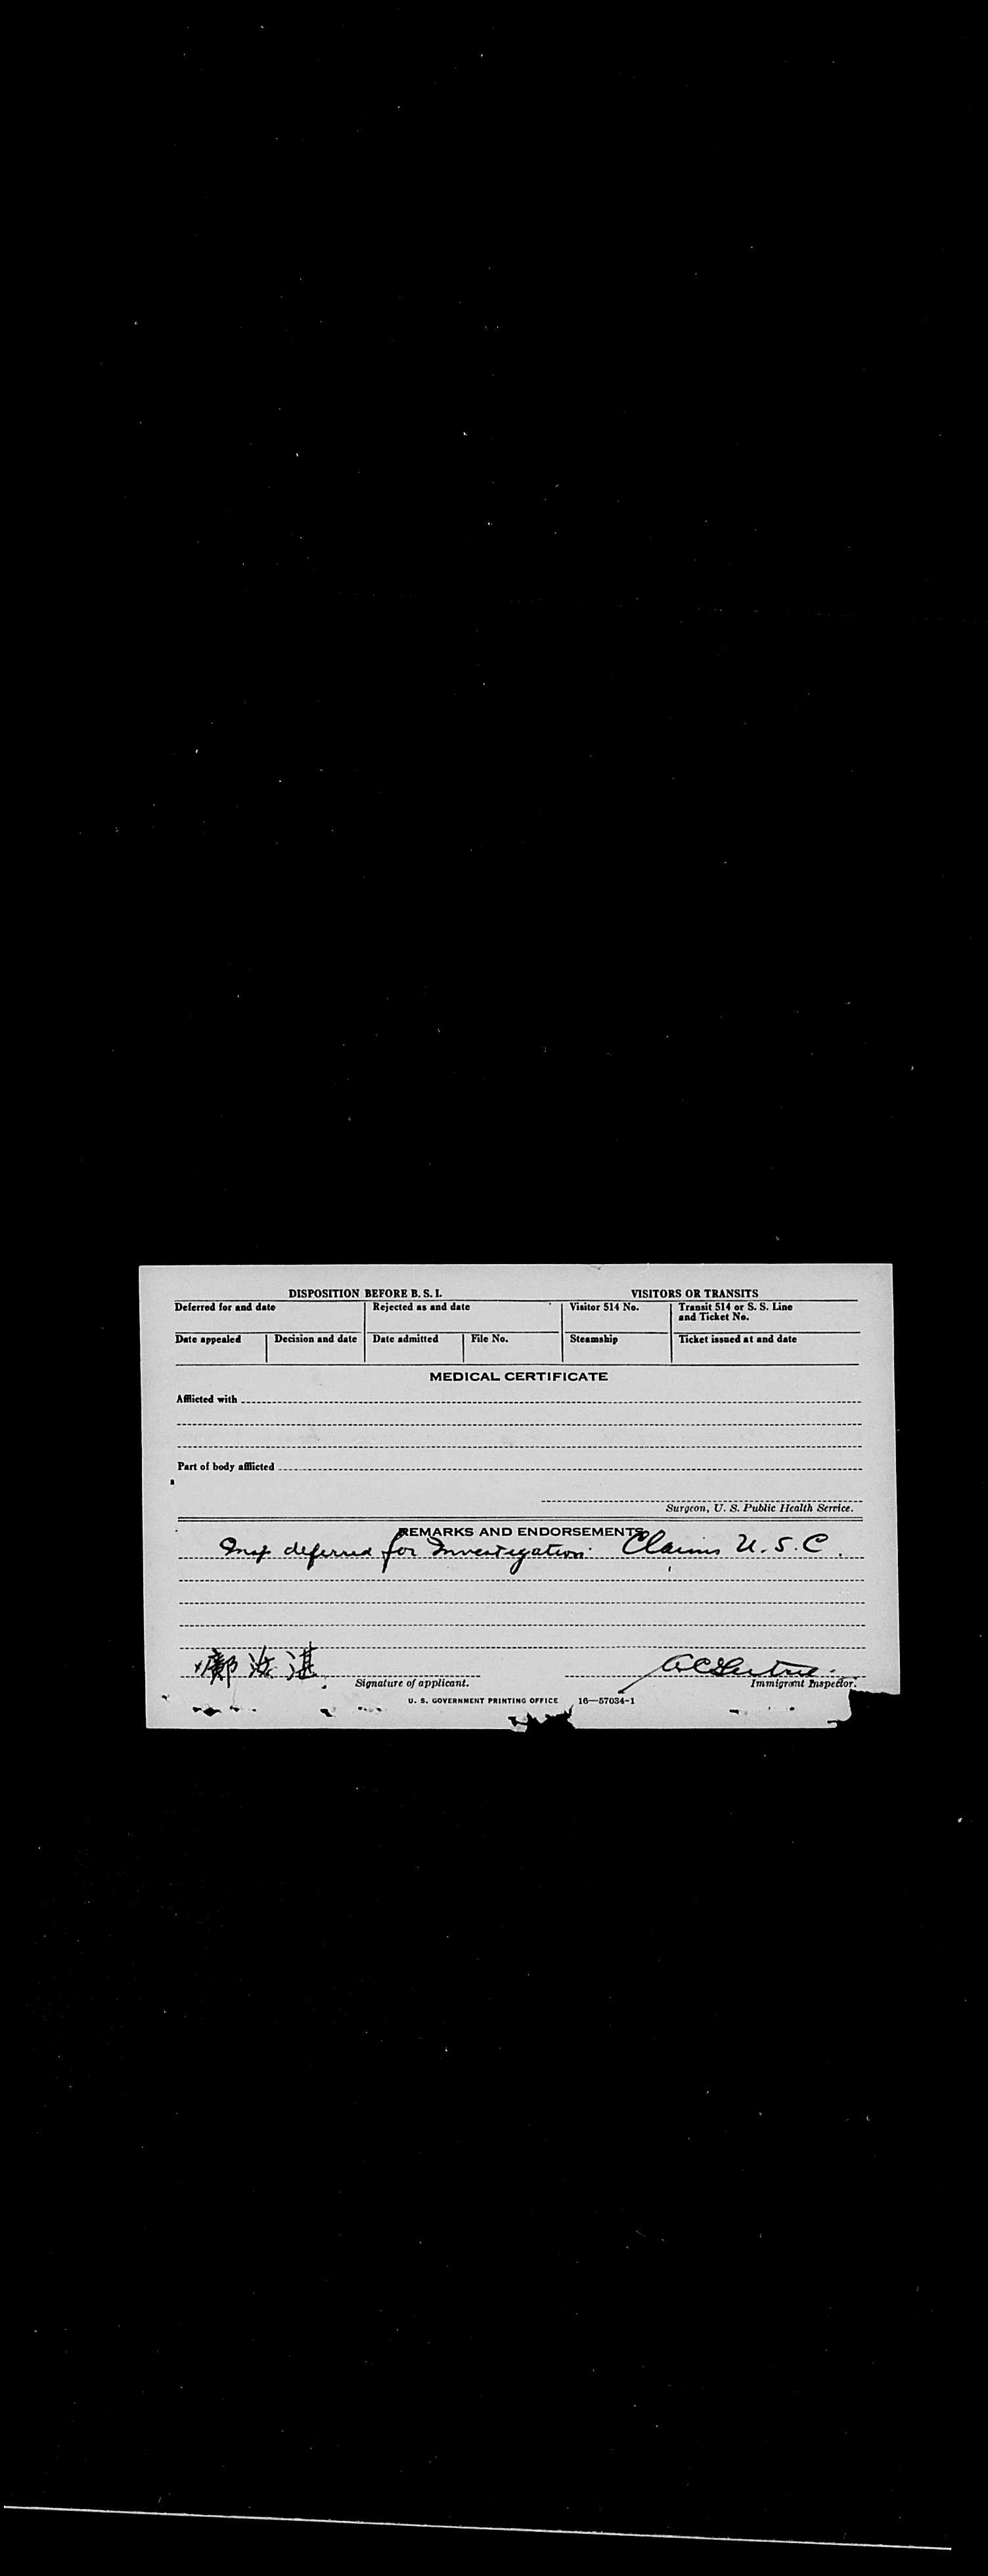 DISPOSITION BEFORE B. S. I.
VISITORS OR TRANSITS
Deferred for and date
Rejected as and date
Visitor 514 No.
Transit 514 or S. S. Line
and Ticket No.
Date appealed
Decision and date
Date admitted
File No.
Steamship
Ticket issued at and date
MEDICAL CERTIFICATE
Afflicted with
Part of body afflicted
Surgeon, U. S. Public Health Service.
REMARKS AND ENDORSEMENTS
Insp deferred for Investigation. Claims U.S.C.
鄺 湛
Signature of applicant.
Immigrant Inspector.
U. S. GOVERNMENT PRINTING OFFICE 16—57034-1